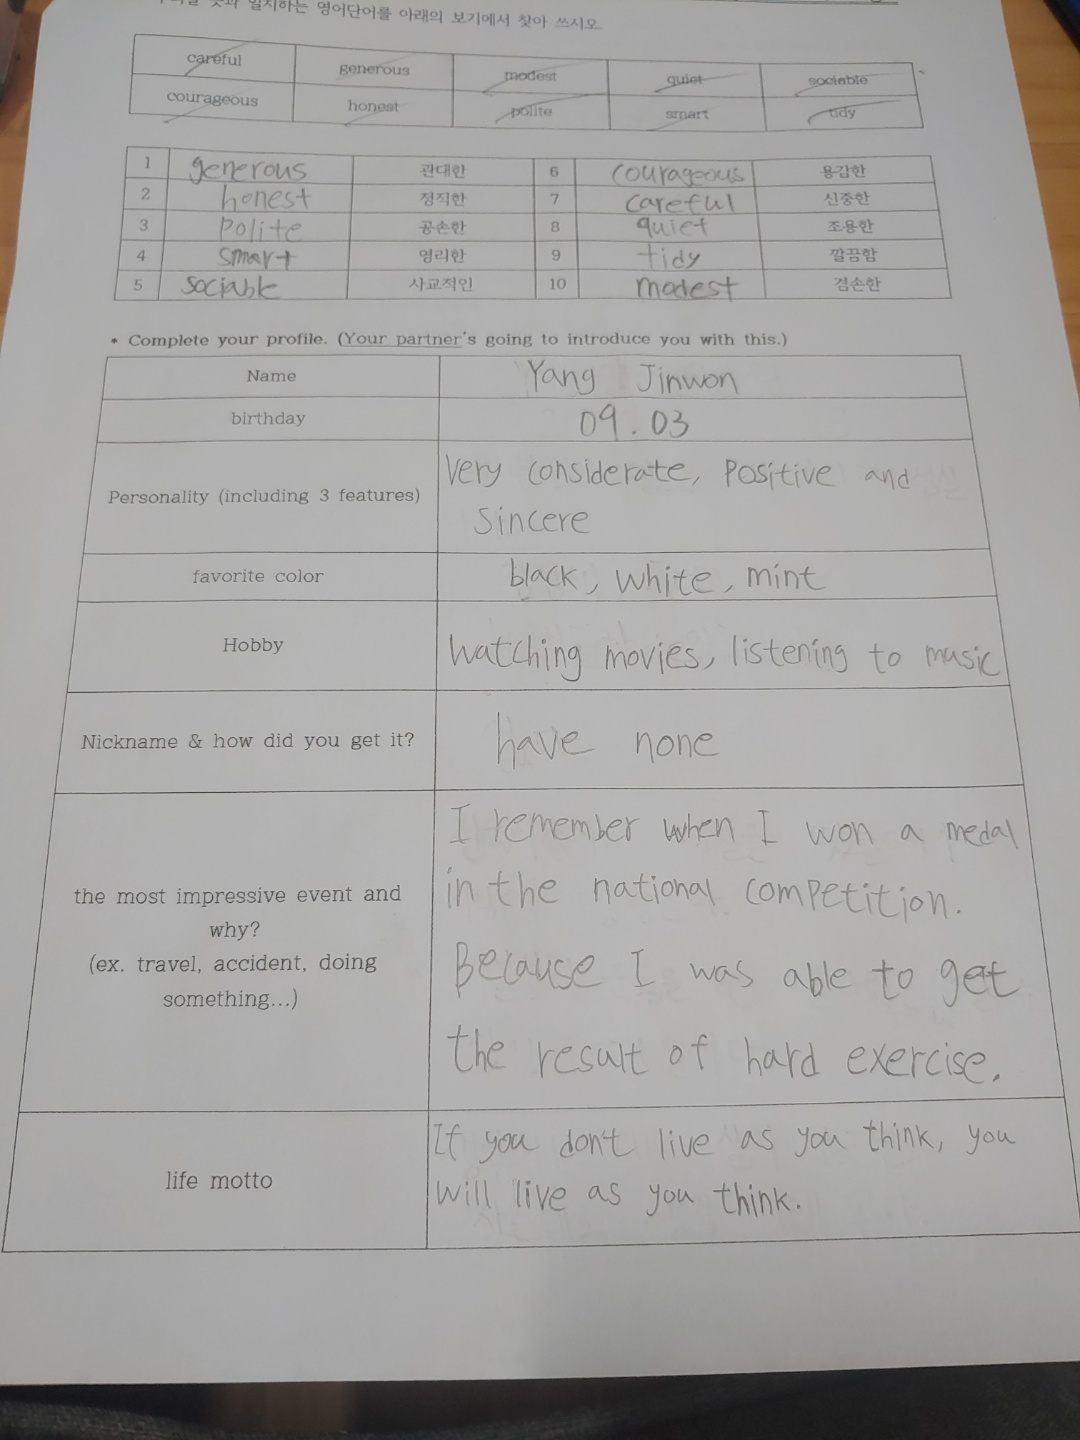 일치하는 영어단어를 아래의 보기에서 찾아 쓰시오.
careful generous modest quiet sociable
courageous honest polite smart tidy
1 generous 관대한 6 courageous 용감한
2 honest 정직한 7 careful 신중한
3 polite 공손한 8 quiet 조용한
4 smart 영리한 9 tidy 깔끔함
5 sociable 사교적인 10 modest 겸손한
• Complete your profile. (Your partner's going to introduce you with this.)
Name Yang Jinwon
birthday 09.03
Personality (including 3 features) Very considerate, positive and
sincere
favorite color black, white, mint
Hobby watching movies, listening to music
Nickname & how did you get it? have none
the most impressive event and
why?
(ex. travel, accident, doing
something...)
I remember when I won a medal
in the national competition.
Because I was able to get
the result of hard exercise.
life motto
If you don't live as you think, you
will live as you think.